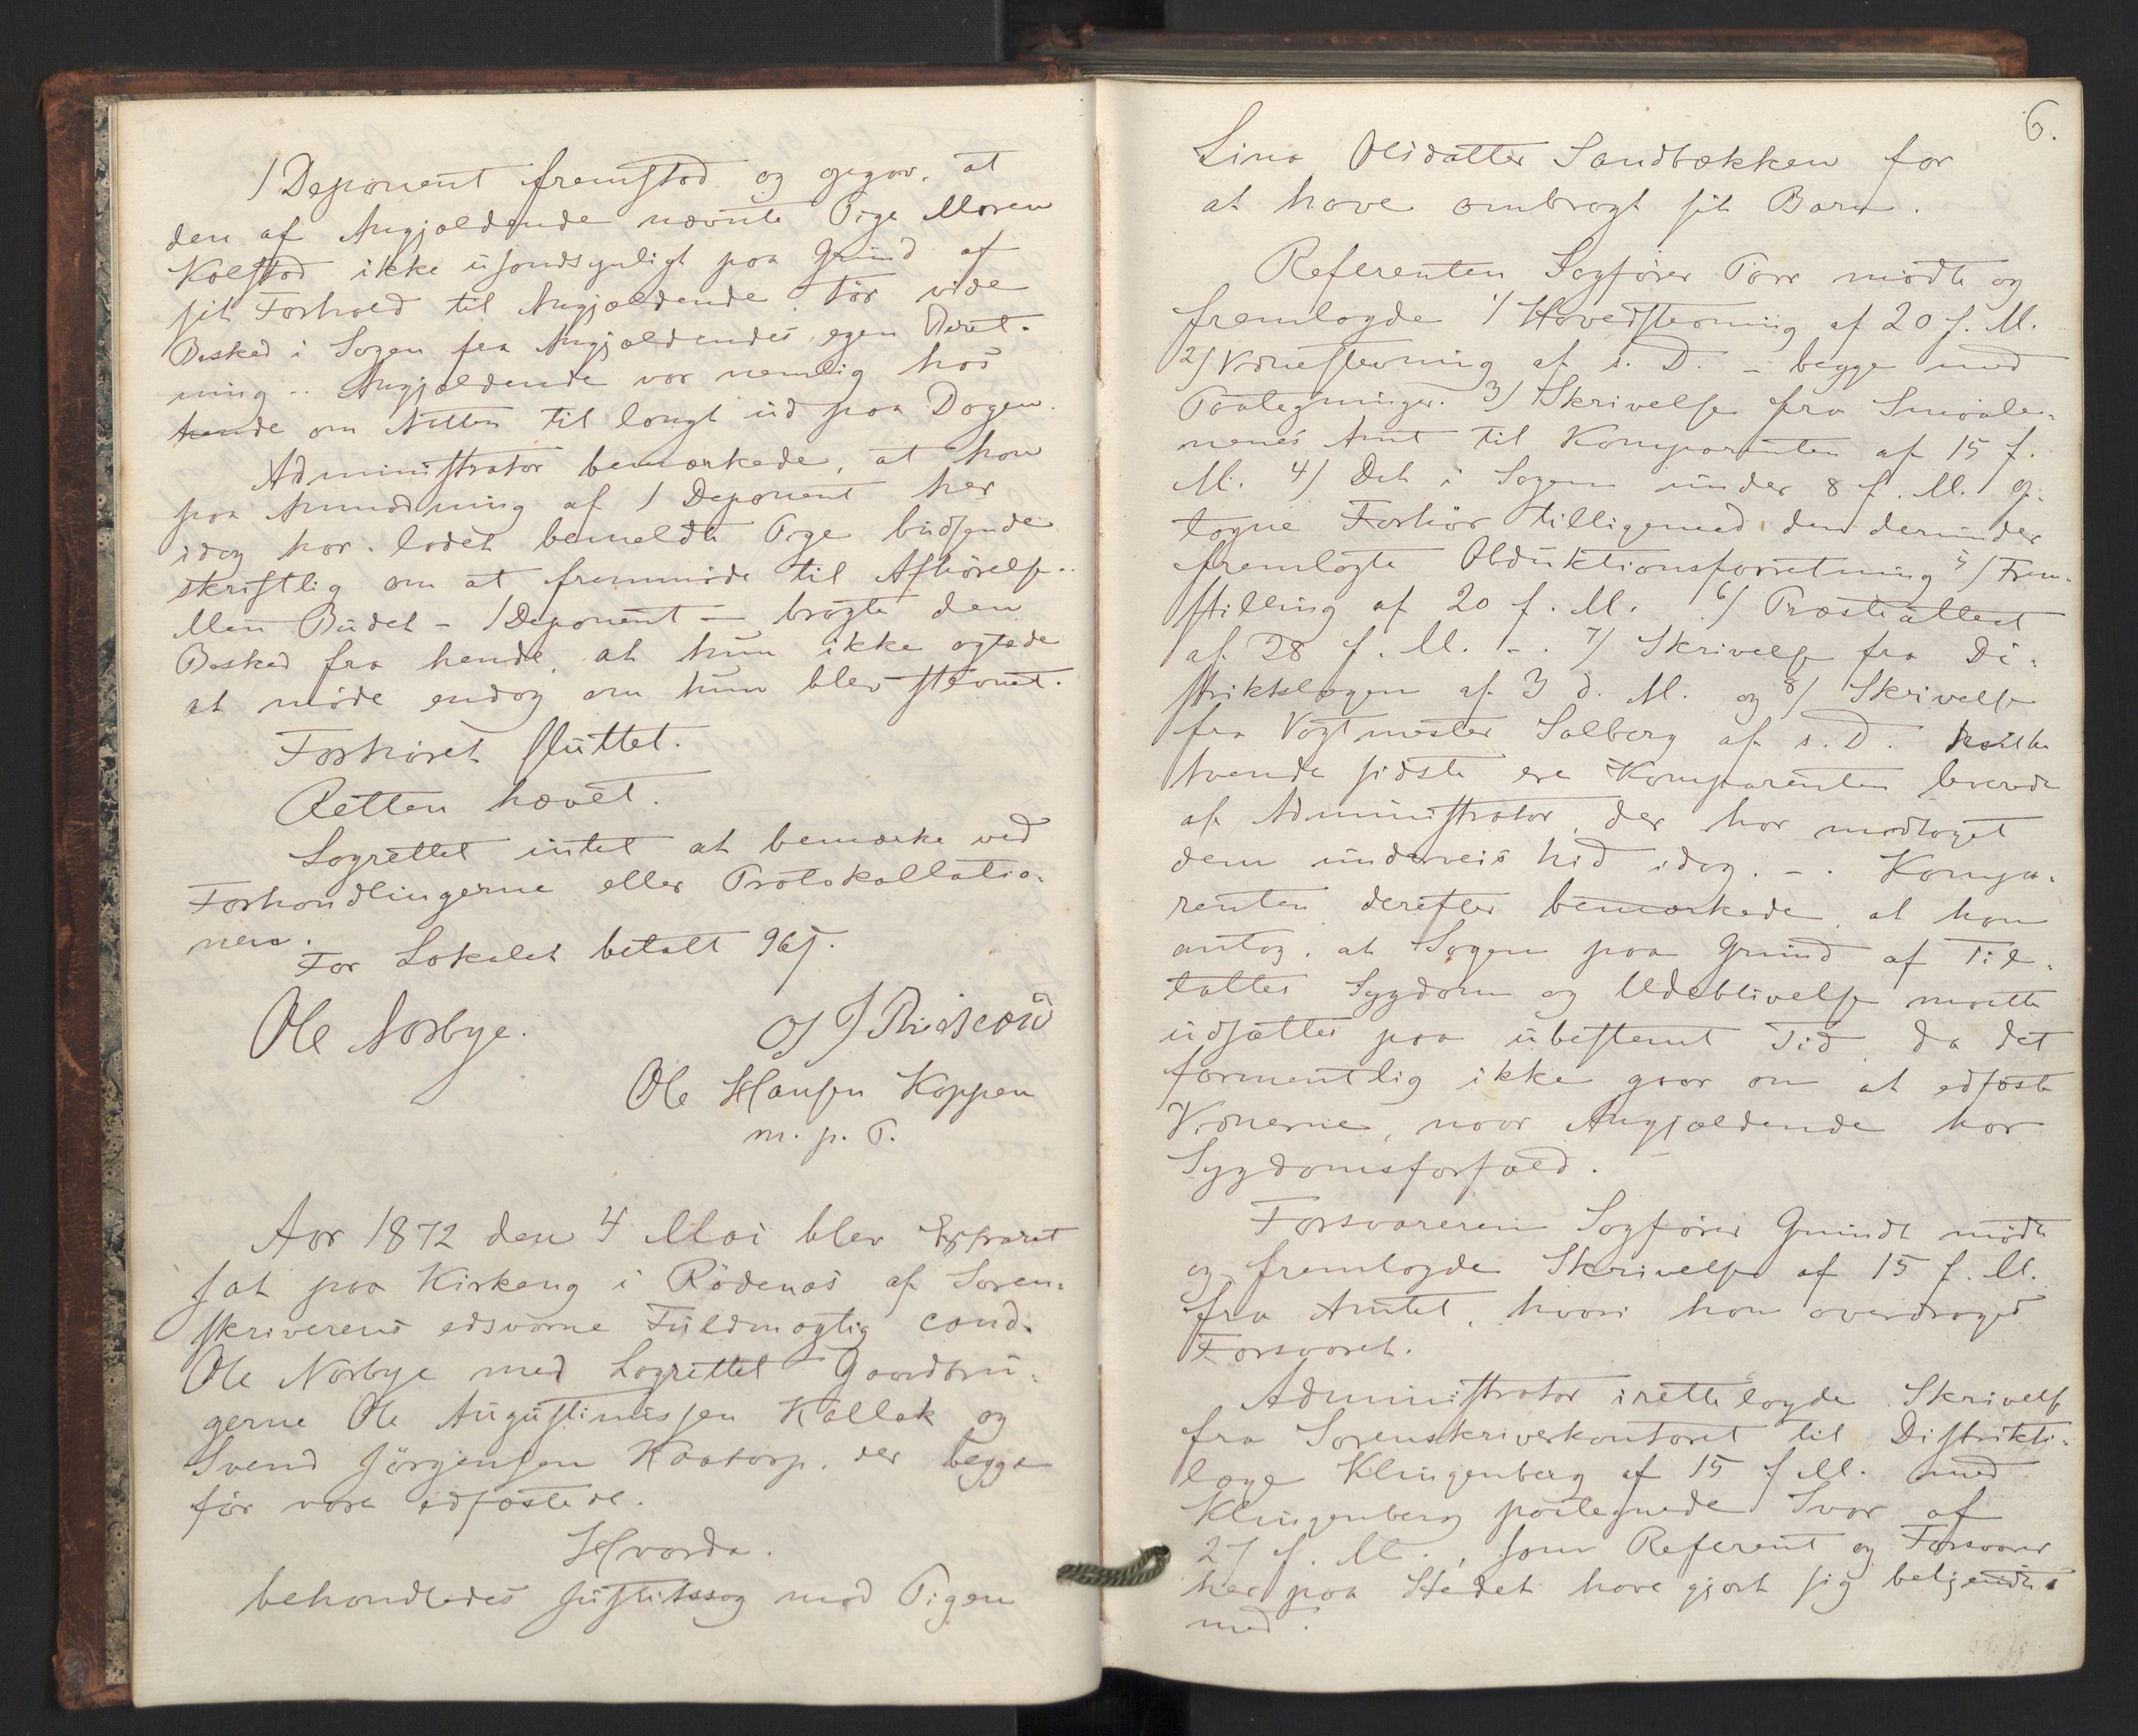 1 Deponent fremstod og opgav, at
den af Angjældende nævnte Pige Maren
Kolstad ikke usandsynligt paa Grund af
sit Forhold til Angjældende tør vide
Besked i Sagen fra Angjældendes egen Beret-
ning. Angjældende var nemlig hos
hende om Natten til langt ud paa Dagen.
Administrator bemærkede, at han
paa Anmodning af 1 Deponent her
idag har ladet bemeldte Pige budsende
skriftlig om at fremmøde til Afhørelse.
Men Budet - 1 Deponent - bragte den
Besked fra hende, at hun ikke agtede
at møde endog om hun blev stævnet.
Forhøret sluttet.
Retten hævet.
Lagrettet intet at bemærke ved
Forhandlingerne eller Protokollatio-
nen.
For Lokalet betalt 96 s.
Ole Norbye.
Ole Hansen Koppen
m. p. P.
Aar 1872 den 4 Mai blev Extraret
sat paa Kirkeng i Rødenæs af Soren-
skriverens edsvorne Fuldmægtig cand.
Ole Norbye med Lagrettet Gaardbru-
gerne Ole Augustinussen Kallak og
Svend Jørgensen Kaatorp, der begge
før vare edfæstede.
Hvorda.
behandledes Justitssag mod Pigen
6.
Lina Olsdatter Sandbækken for
at have ombragt sit Barn.
Referenten Sagfører Parr mødte og
fremlagde 1/ Hovedstevning af 20 f. M.
2/ Vidnestevning af s. D. - begge med
Paategninger. 3/ Skrivelse fra Smaale-
nenes Amt til Komparenten af 15 f.
M. 4/ Det i Sagen under 8 f. M. op-
tagne Forhør tilligemed den derunder
fremlagte Obduktionsforretning 5/ Frem-
stilling af 20 f. M. 6/ Præsteattest
af 28 f. M. -. 7/ Skrivelse fra Di-
striktslægen af 3 d. M. og 8/ Skrivelse
fra Vagtmester Solberg af s. D. hvilke
tvende sidste ere Komparenten leverede
af Administrator, der har modtaget
dem underveis hid idag. -. Kompa-
renten derefter bemærkede, at han
antog, at Sagen paa Grund af Til-
taltes Sygdom og Udeblivelse maatte
udsættes paa ubestemt Tid, da det
formentlig ikke gaar an at edfæste
Vidnerne, naar Angjældende har
Sygdomsforfald.
Forsvareren Sagfører Gundt mødte
og fremlagde Skrivelse af 15 f. M.
fra Amtet, hvori ham overdrages
Forsvaret.
Administrator iretteslagde Skrivelse
fra Sorenskriverkontoret til Distrikts-
læge Klingenberg af 15 f. M. med
Klingenbergs paategnede Svar af
27 f. M., som Referent og Forsvarer
her paa Stedet have gjort sig bekjendte
med.